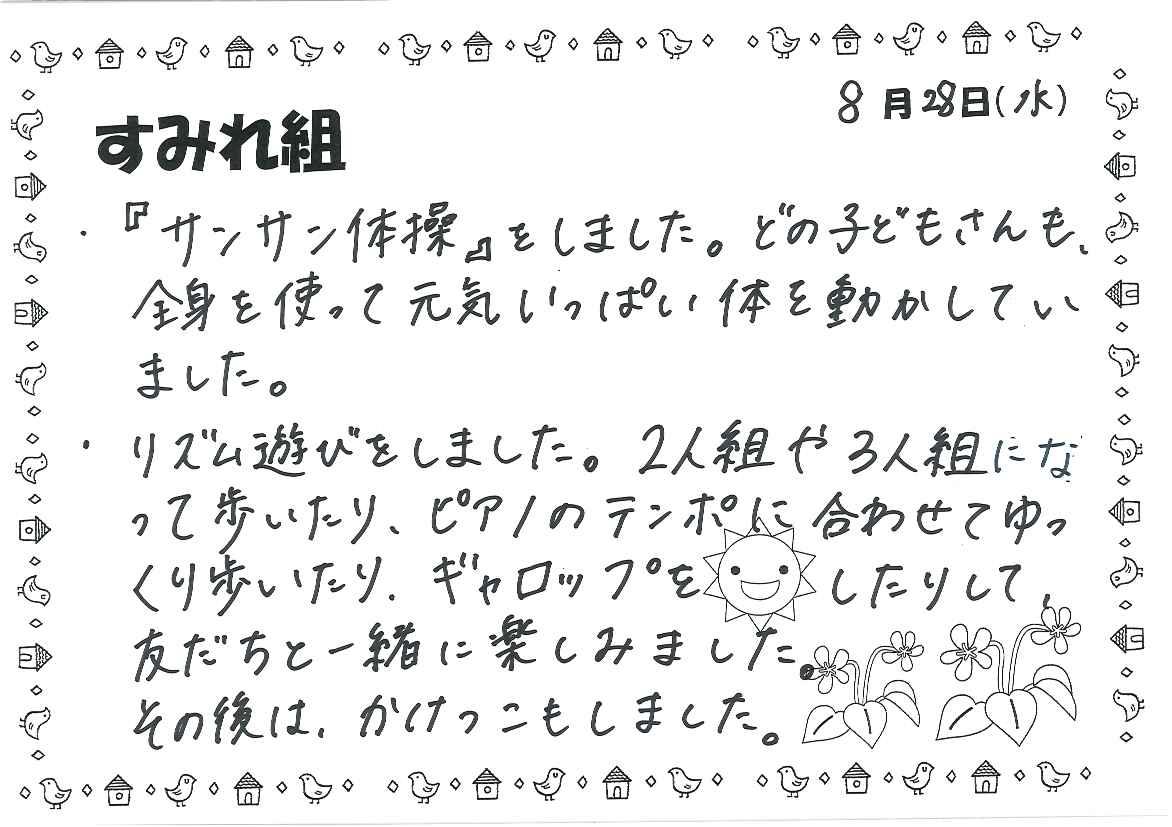 8月28日(水)
すみれ組
・『サンサン体操』をしました。どの子どもさんも、
全身を使って元気いっぱい体を動かしてい
ました。
・リズム遊びをしました。2人組や3人組にな
って歩いたり、ピアノのテンポに合わせてゆっ
くり歩いたり、ギャロップをしたりして、
友だちと一緒に楽しみました。
その後は、かけっこもしました。